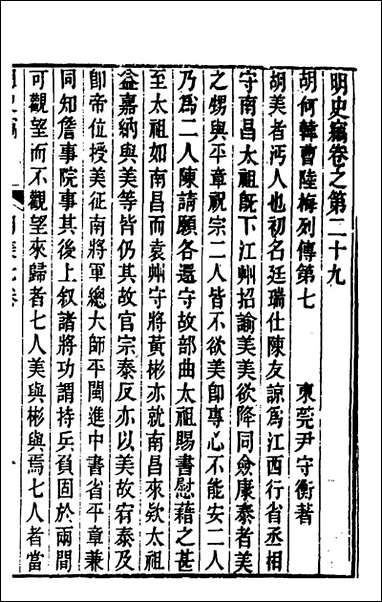 明史竊卷之第二十九
胡何韓曹陸梅列傳第七　東莞尹守衡著
胡美者沔人也初名廷瑞仕陳友諒爲江西行省丞相
守南昌太祖旣下江州招諭美美欲降同僉康泰者美
之甥與平章祝宗二人皆不欲美卽專心不能安二人
乃爲二人陳請願各還守故部曲太祖賜書慰藉之甚
至太祖如南昌而袁州守將黃彬亦就南昌來欵太祖
益嘉納與美等皆仍其故官宗泰反亦以美故宥泰及
卽帝位授美征南將軍總大師平閩進中書省平章兼
同知詹事院事其後上叙諸將功謂持兵負固於兩間
可觀望而不觀望來歸者七人美與彬與焉七人者當